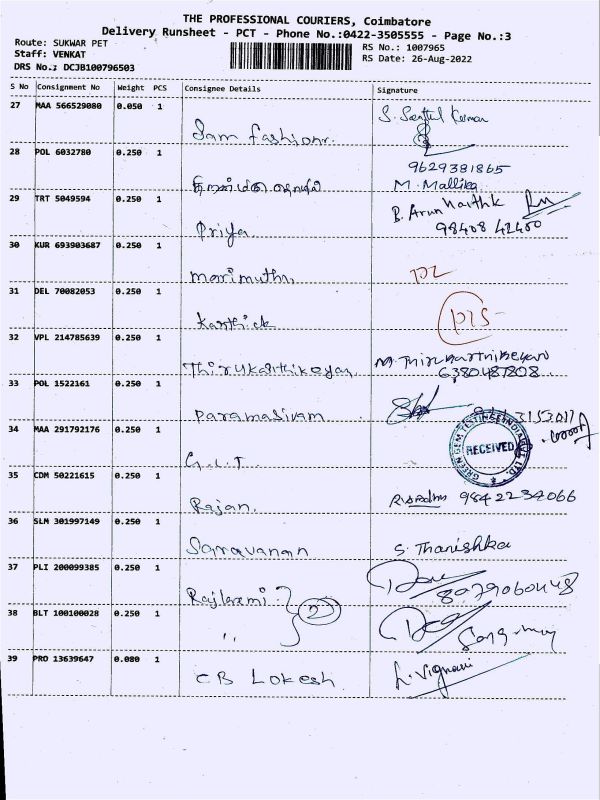 THE PROFESSIONAL COURIERS, Coimbatore
Delivery Runsheet - PCT - Phone No.:0422-3505555 - Page No.:3
Route: SUKWAR PET
RS No.: 1007965
Staff: VENKAT
RS Date: 26-Aug-2022
DRS No.: DCJB100796503
S No Consignment No Weight PCS Consignee Details Signature
27 MAA 566529080 0.050 1 Sam fashion
28 POL 6032780 0.250 1
9629381865
M. Mallika
29 TRT 5049594 0.250 1 Priya
B. Arun
98408 42400
30 KUR 693903687 0.250 1 marimuthu
31 DEL 70082053 0.250 1 Karthick
32 VPL 214785639 0.250 1 Thirukarthikeyan
M. Thirukarthikeyan
6380487808
33 POL 1522161 0.250 1 Paramasivam
34 MAA 291792176 0.250 1 G.C.T
RECEIVED
35 CDM 50221615 0.250 1 Rajan
9842234066
36 SLM 301997149 0.250 1 Saravanan S. Thanishka
37 PLI 200099385 0.250 1 Rajlaxmi
38 BLT 100100028 0.250 1 ,, 2
39 PRO 13639647 0.080 1 CB Lokesh L. Vignani